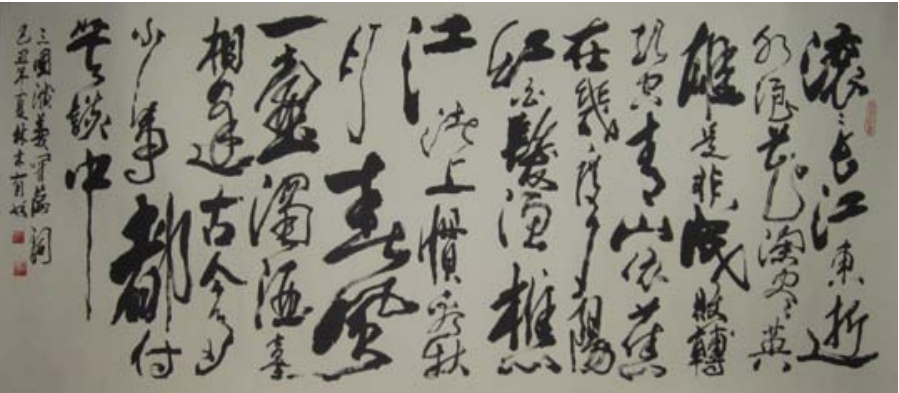 滚〻长江東逝
水浪花淘尽英
雄是非成敗轉
头空青山依舊
在幾度夕陽
红白髮渔樵
江渚上慣看秋
月春風
一壺濁酒喜
相逢古今多
少事都付
笑談中
三國演義開篇詞
己丑年夏林